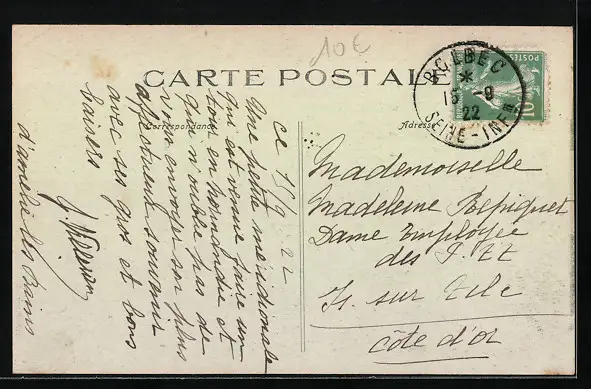 10€
CARTE POSTALE
Correspondance
Adresse
BOLBEC
*
15 -9
22
SEINE-INFRE
POSTES
10
ce 15/9 22
Une petite méridionale
qui est venue faire un
tour en Normandie et
qui n'oublie pas de
vous envoyer son plus
affectueux souvenir
avec ses gros et bons
baisers
d'amélie les Bains
Mademoiselle
Madeleine Repiquet
Dame Employée
des P.T.T
Is sur Tille
Côte d'Or